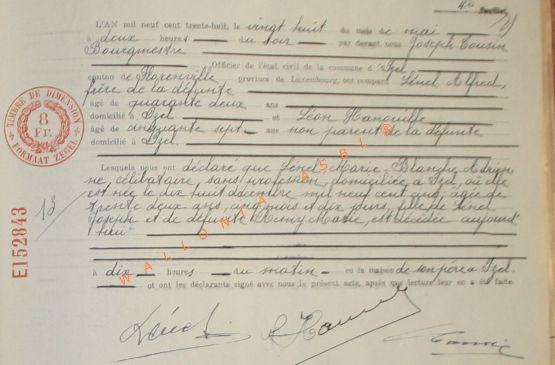 4e feuillet
L'AN mil neuf cent trente-huit, le vingt huit du mois de mai
à deux heures du soir par devant nous Joseph Cousin
Bourgmestre
Officier de l'état civil de la commune d'Izel
canton de Florenville, province de Luxembourg, ont comparu Lénel Alfred,
frère de la défunte
âgé de quarante deux ans
domicilié à Izel et Léon Hanouille
âgé de cinquante sept ans non parent de la défunte
domicilié à Izel
Lesquels nous ont déclaré que Lénel Marie Blanche Adrien
ne, célibataire, sans profession, domiciliée à Izel, où elle
est née le dix huit décembre mil neuf cent cinq, âgée de
trente deux ans, cinq mois et dix jours, fille de Lénel
Joseph et de défunte Remy Marie, est décédée aujourd'
hui
à dix heures du matin en la maison de son père à Izel
et ont les déclarants signé avec nous le présent acte, après que lecture leur en a été faite.
13
TIMBRE DE DIMENSION
8
Fr.
FORMAAT ZEGEL
E152843
WALLONIA ASBL